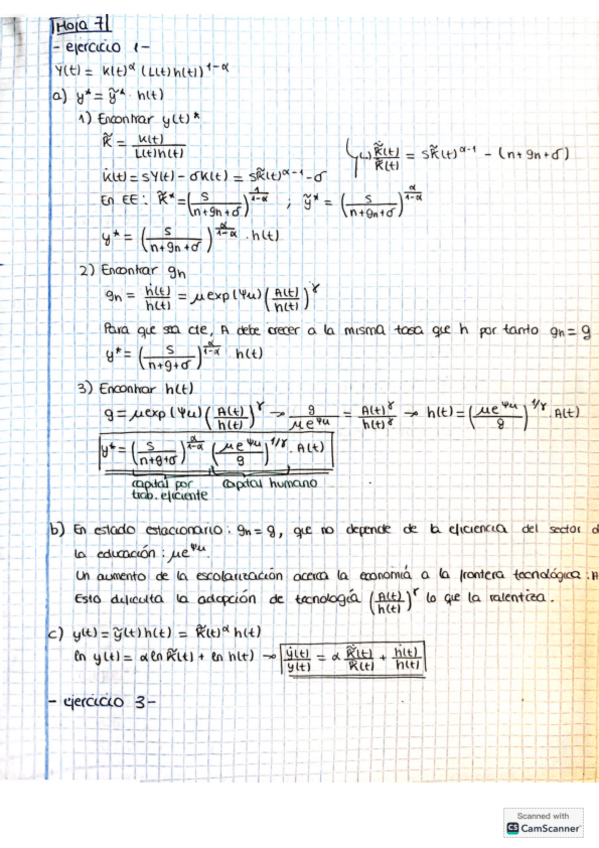 Hoja 7
- ejercicio 1 -
Y(t) = K(t)^α (L(t)h(t))^1-α
a) y* = ỹ* · h(t)
1) Encontrar y(t)*
k̃ = K(t) / L(t)h(t)
↳ k̃̇(t)/k̃(t) = sk̃(t)^α-1 - (n+gn+σ)
k̇(t) = sY(t) - σK(t) = sk̃(t)^α-1 - σ
En EE: k̃* = (s/(n+gn+σ))^1/1-α ; ỹ* = (s/(n+gn+σ))^α/1-α
y* = (s/(n+gn+σ))^α/1-α · h(t)
2) Encontrar gn
gn = ḣ(t)/h(t) = μexp(Ψu) (A(t)/h(t))^γ
Para que sea cte, A debe crecer a la misma tasa que h por tanto gn = g
y* = (s/(n+g+σ))^α/1-α h(t)
3) Encontrar h(t)
g = μexp(Ψu) (A(t)/h(t))^γ → g/μe^Ψu = A(t)^γ/h(t)^γ → h(t) = (μe^Ψu/g)^1/γ · A(t)
y* = (s/(n+g+σ))^α/1-α (μe^Ψu/g)^1/γ · A(t)
capital por trab. eficiente
capital humano
b) En estado estacionario: gn = g, que no depende de la eficiencia del sector d
la educación: μe^Ψu.
Un aumento de la escolarización acerca la economía a la frontera tecnológica: A
Esto dificulta la adopción de tecnología (A(t)/h(t))^γ lo que la ralentiza.
c) y(t) = ỹ(t)h(t) = k̃(t)^α h(t)
ln y(t) = α ln k̃(t) + ln h(t) → ẏ(t)/y(t) = α k̃̇(t)/k̃(t) + ḣ(t)/h(t)
- ejercicio 3 -
Scanned with
CS CamScanner